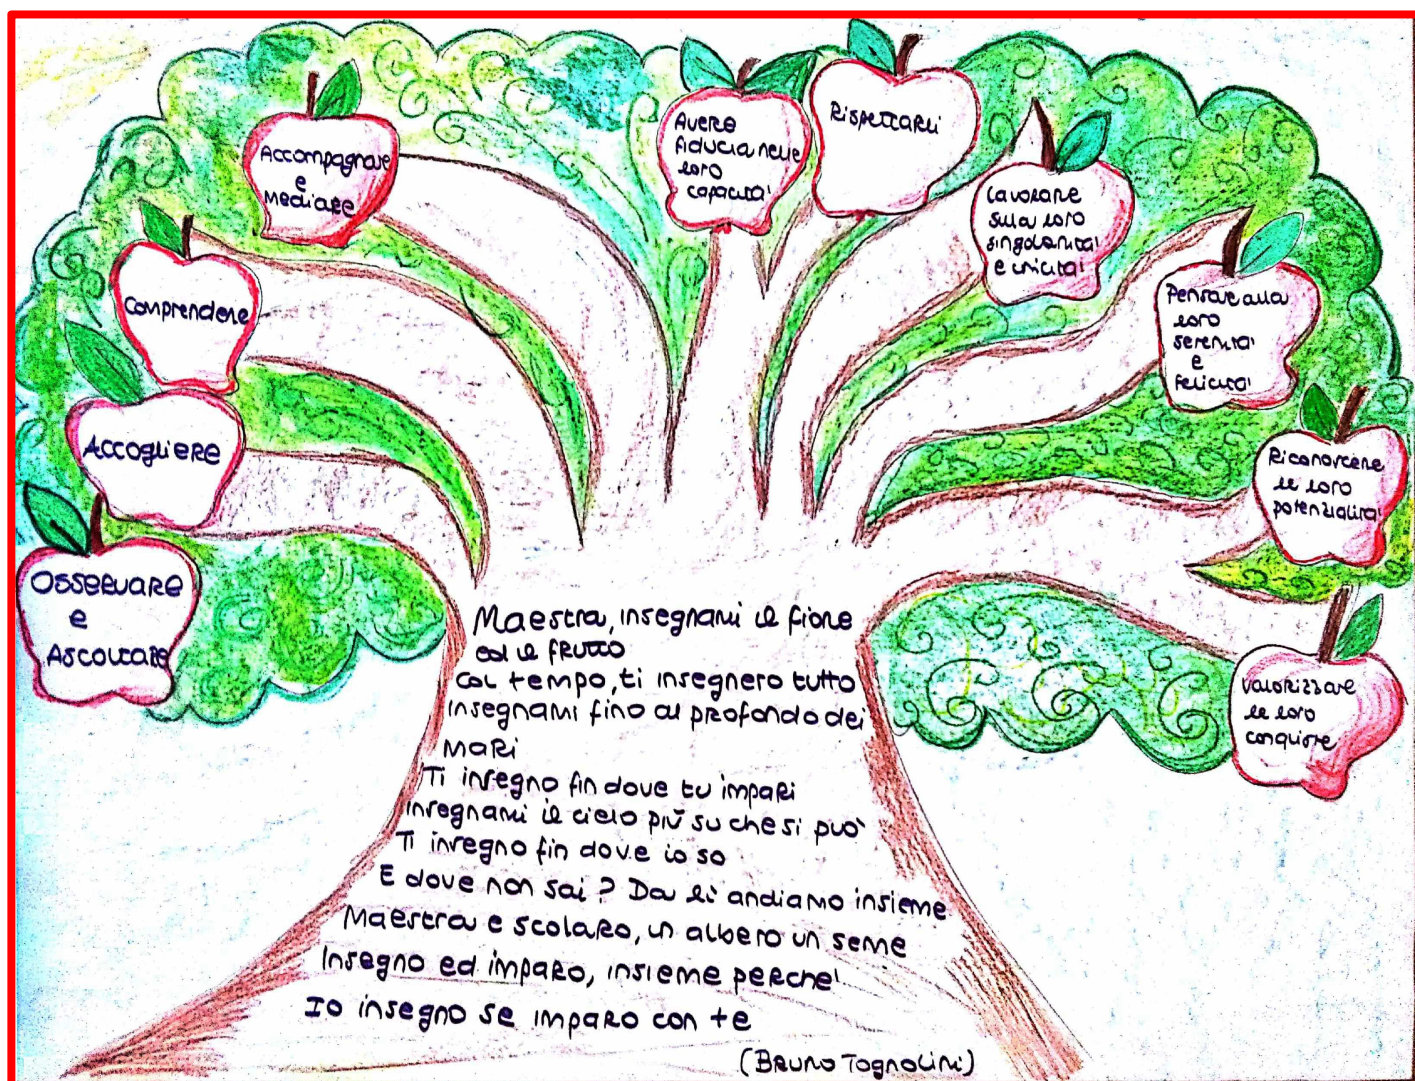 Osservare
e
Ascoltare
Accogliere
Comprendere
Accompagnare
e
Mediare
Avere
fiducia nelle
loro
capacità
Rispettarli
Lavorare
sulla loro
singolarità
e unicità
Pensare alla
loro
serenità
e
felicità
Riconoscere
le loro
potenzialità
Valorizzare
le loro
conquiste
Maestra, insegnami il fiore
ed il frutto
Col tempo, ti insegnero tutto
Insegnami fino al profondo dei
mari
Ti insegno fin dove tu impari
Insegnami il cielo più su che si può
Ti insegno fin dove io so
E dove non sai? Da lì andiamo insieme
Maestra e scolaro, un albero un seme
Insegno ed imparo, insieme perche'
Io insegno se imparo con te
(Bruno Tognolini)